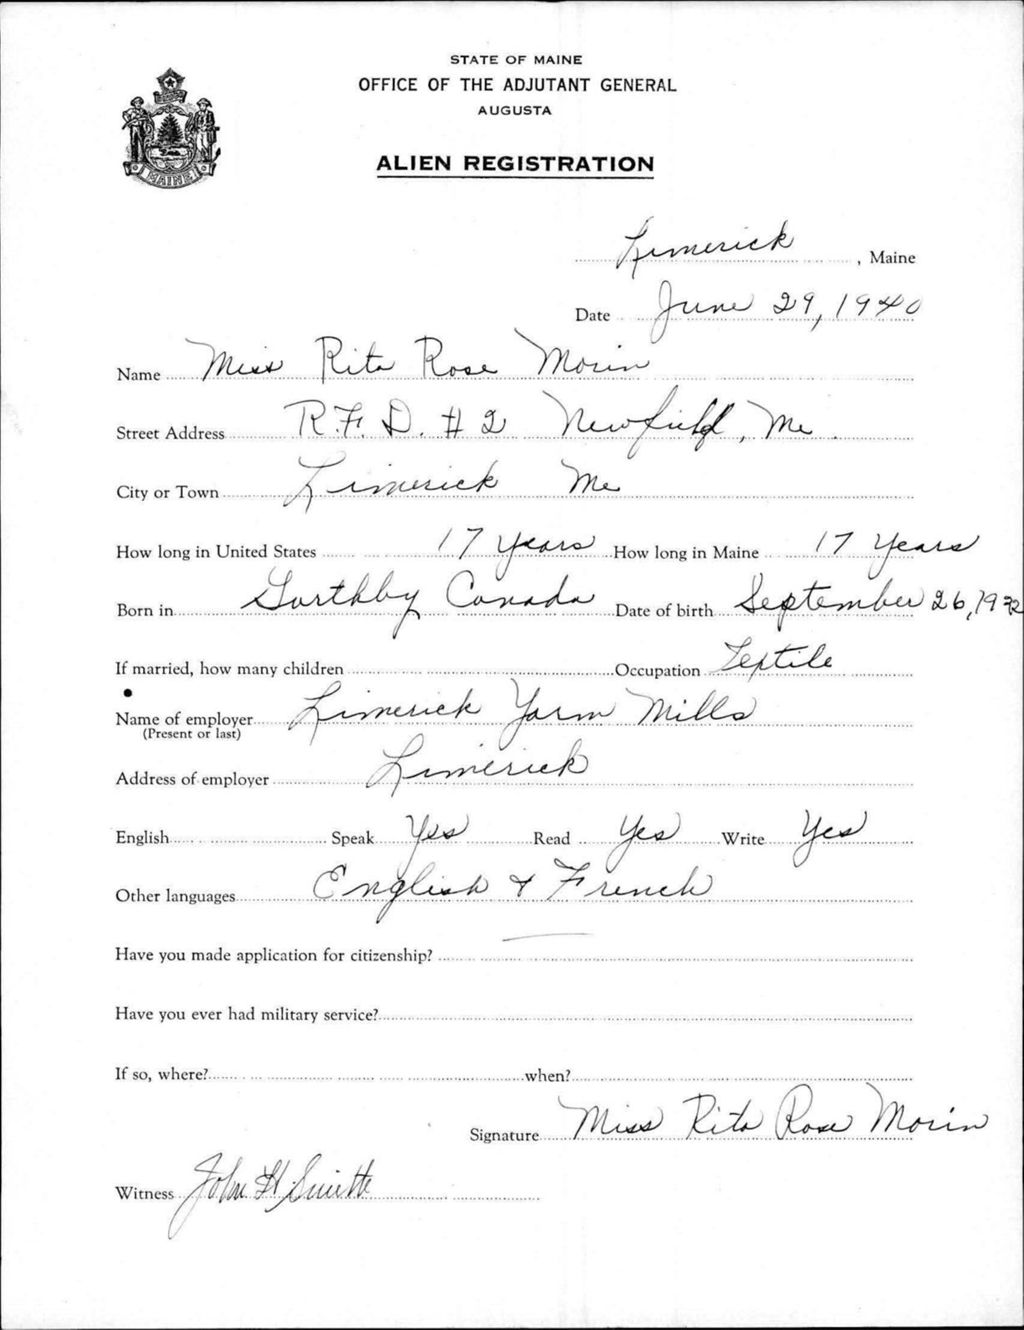 STATE OF MAINE
OFFICE OF THE ADJUTANT GENERAL
AUGUSTA
ALIEN REGISTRATION
MAINE
Limerick, Maine
Date June 29, 1940
Name Miss Rita Rose Morin
Street Address R.F.D. #2 Newfield, Me.
City or Town Limerick Me
How long in United States 17 years How long in Maine 17 years
Born in Canada Date of birth September 26, 19
If married, how many children Occupation Textile
Name of employer Limerick Yarn Mills
(Present or last)
Address of employer Limerick
English Speak Yes Read Yes Write Yes
Other languages English & French
Have you made application for citizenship? —
Have you ever had military service?
If so, where? when?
Signature Miss Rita Rose Morin
Witness John H Smith